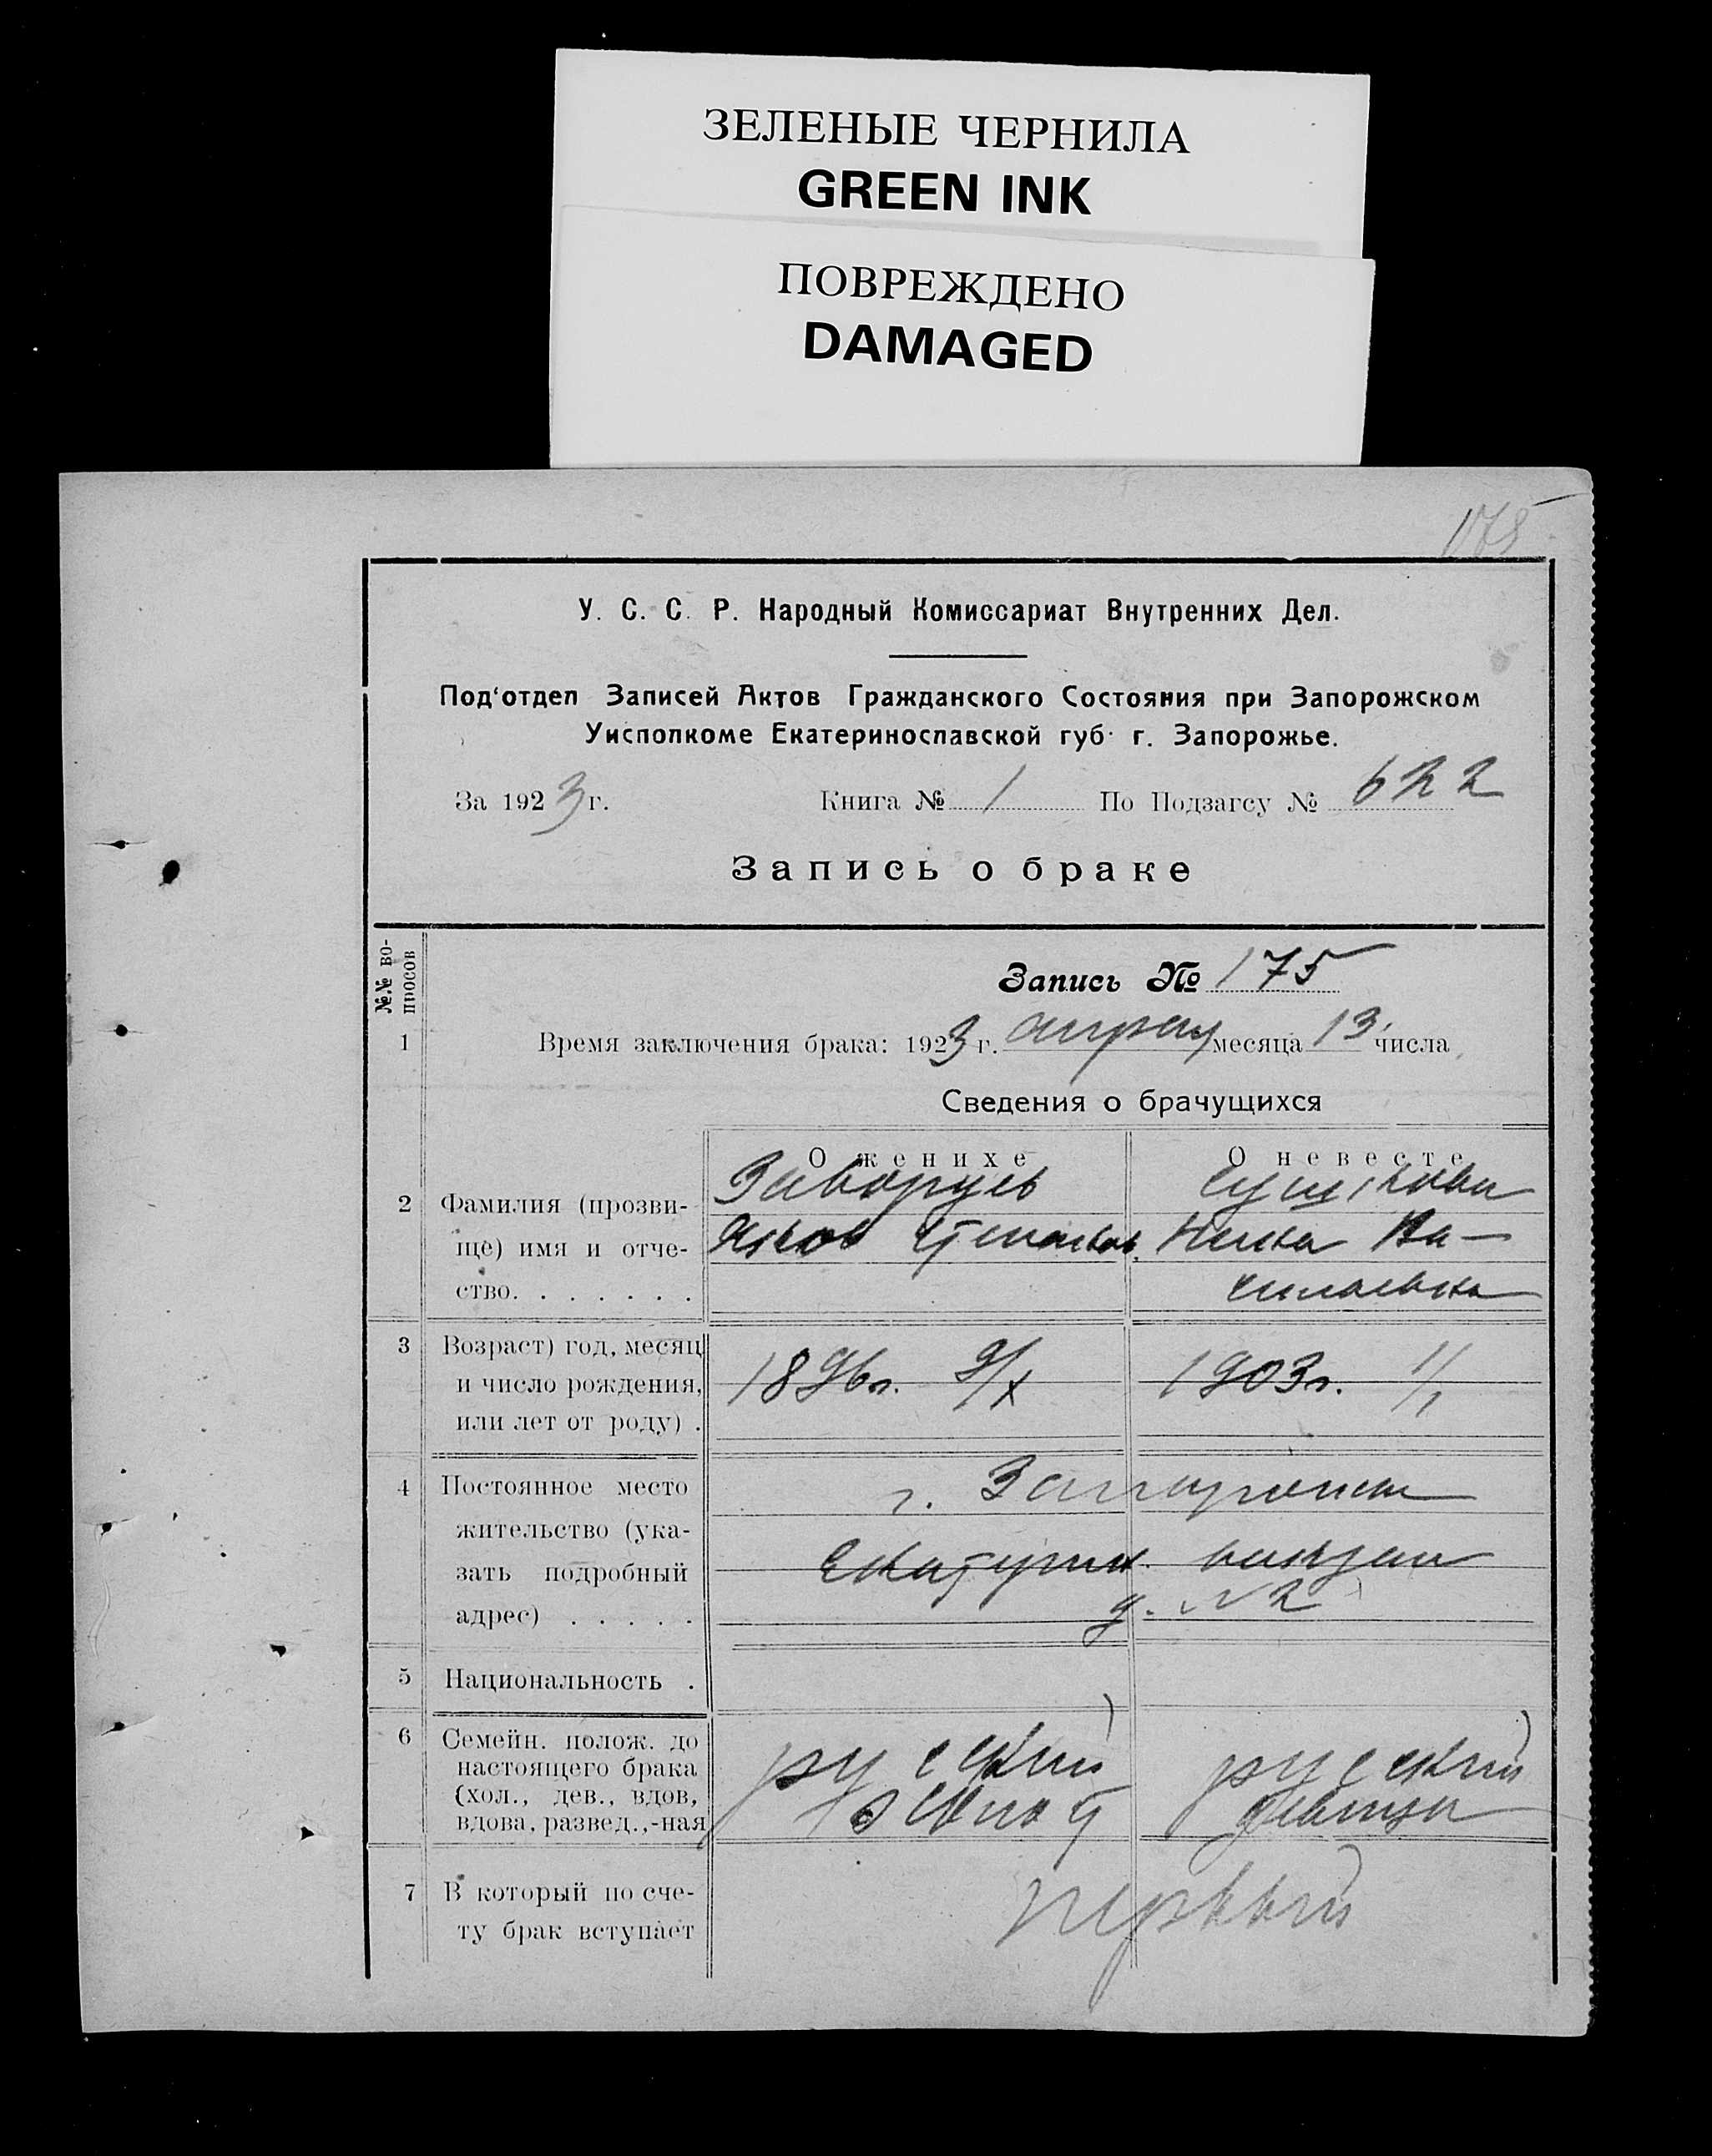 ЗЕЛЕНЫЕ ЧЕРНИЛА
GREEN INK
ПОВРЕЖДЕНО
DAMAGED
175
У. С. С. Р. Народный Комиссариат Внутренних Дел.
Под‘отдел Записей Актов Гражданского Состояния при Запорожском
Уисполкоме Екатеринославской губ. г. Запорожье.
За 1923 г. Книга № 1 По Подзагсу № 622
Запись о браке
№№ во-
просов
Запись № 175
1 Время заключения брака: 1923 г. апреля месяца 13 числа
Сведения о брачущихся
О женихе О невесте
2 Фамилия (прозви-
ще) имя и отче- Яков Нина Ва-
ство. . . . . . . сильевна
3 Возраст) год, месяц
и число рождения, 1896 г. 9/X 1903 г. 1/I
или лет от роду) .
4 Постоянное место г. Запорожье
жительство (ука-
зать подробный
адрес) . . . . . д. № 2
5 Национальность .
6 Семейн. полож. до русский русский
настоящего брака
(хол., дев., вдов, холост девица
вдова, развед.,-ная
7 В который по сче- первый
ту брак вступает